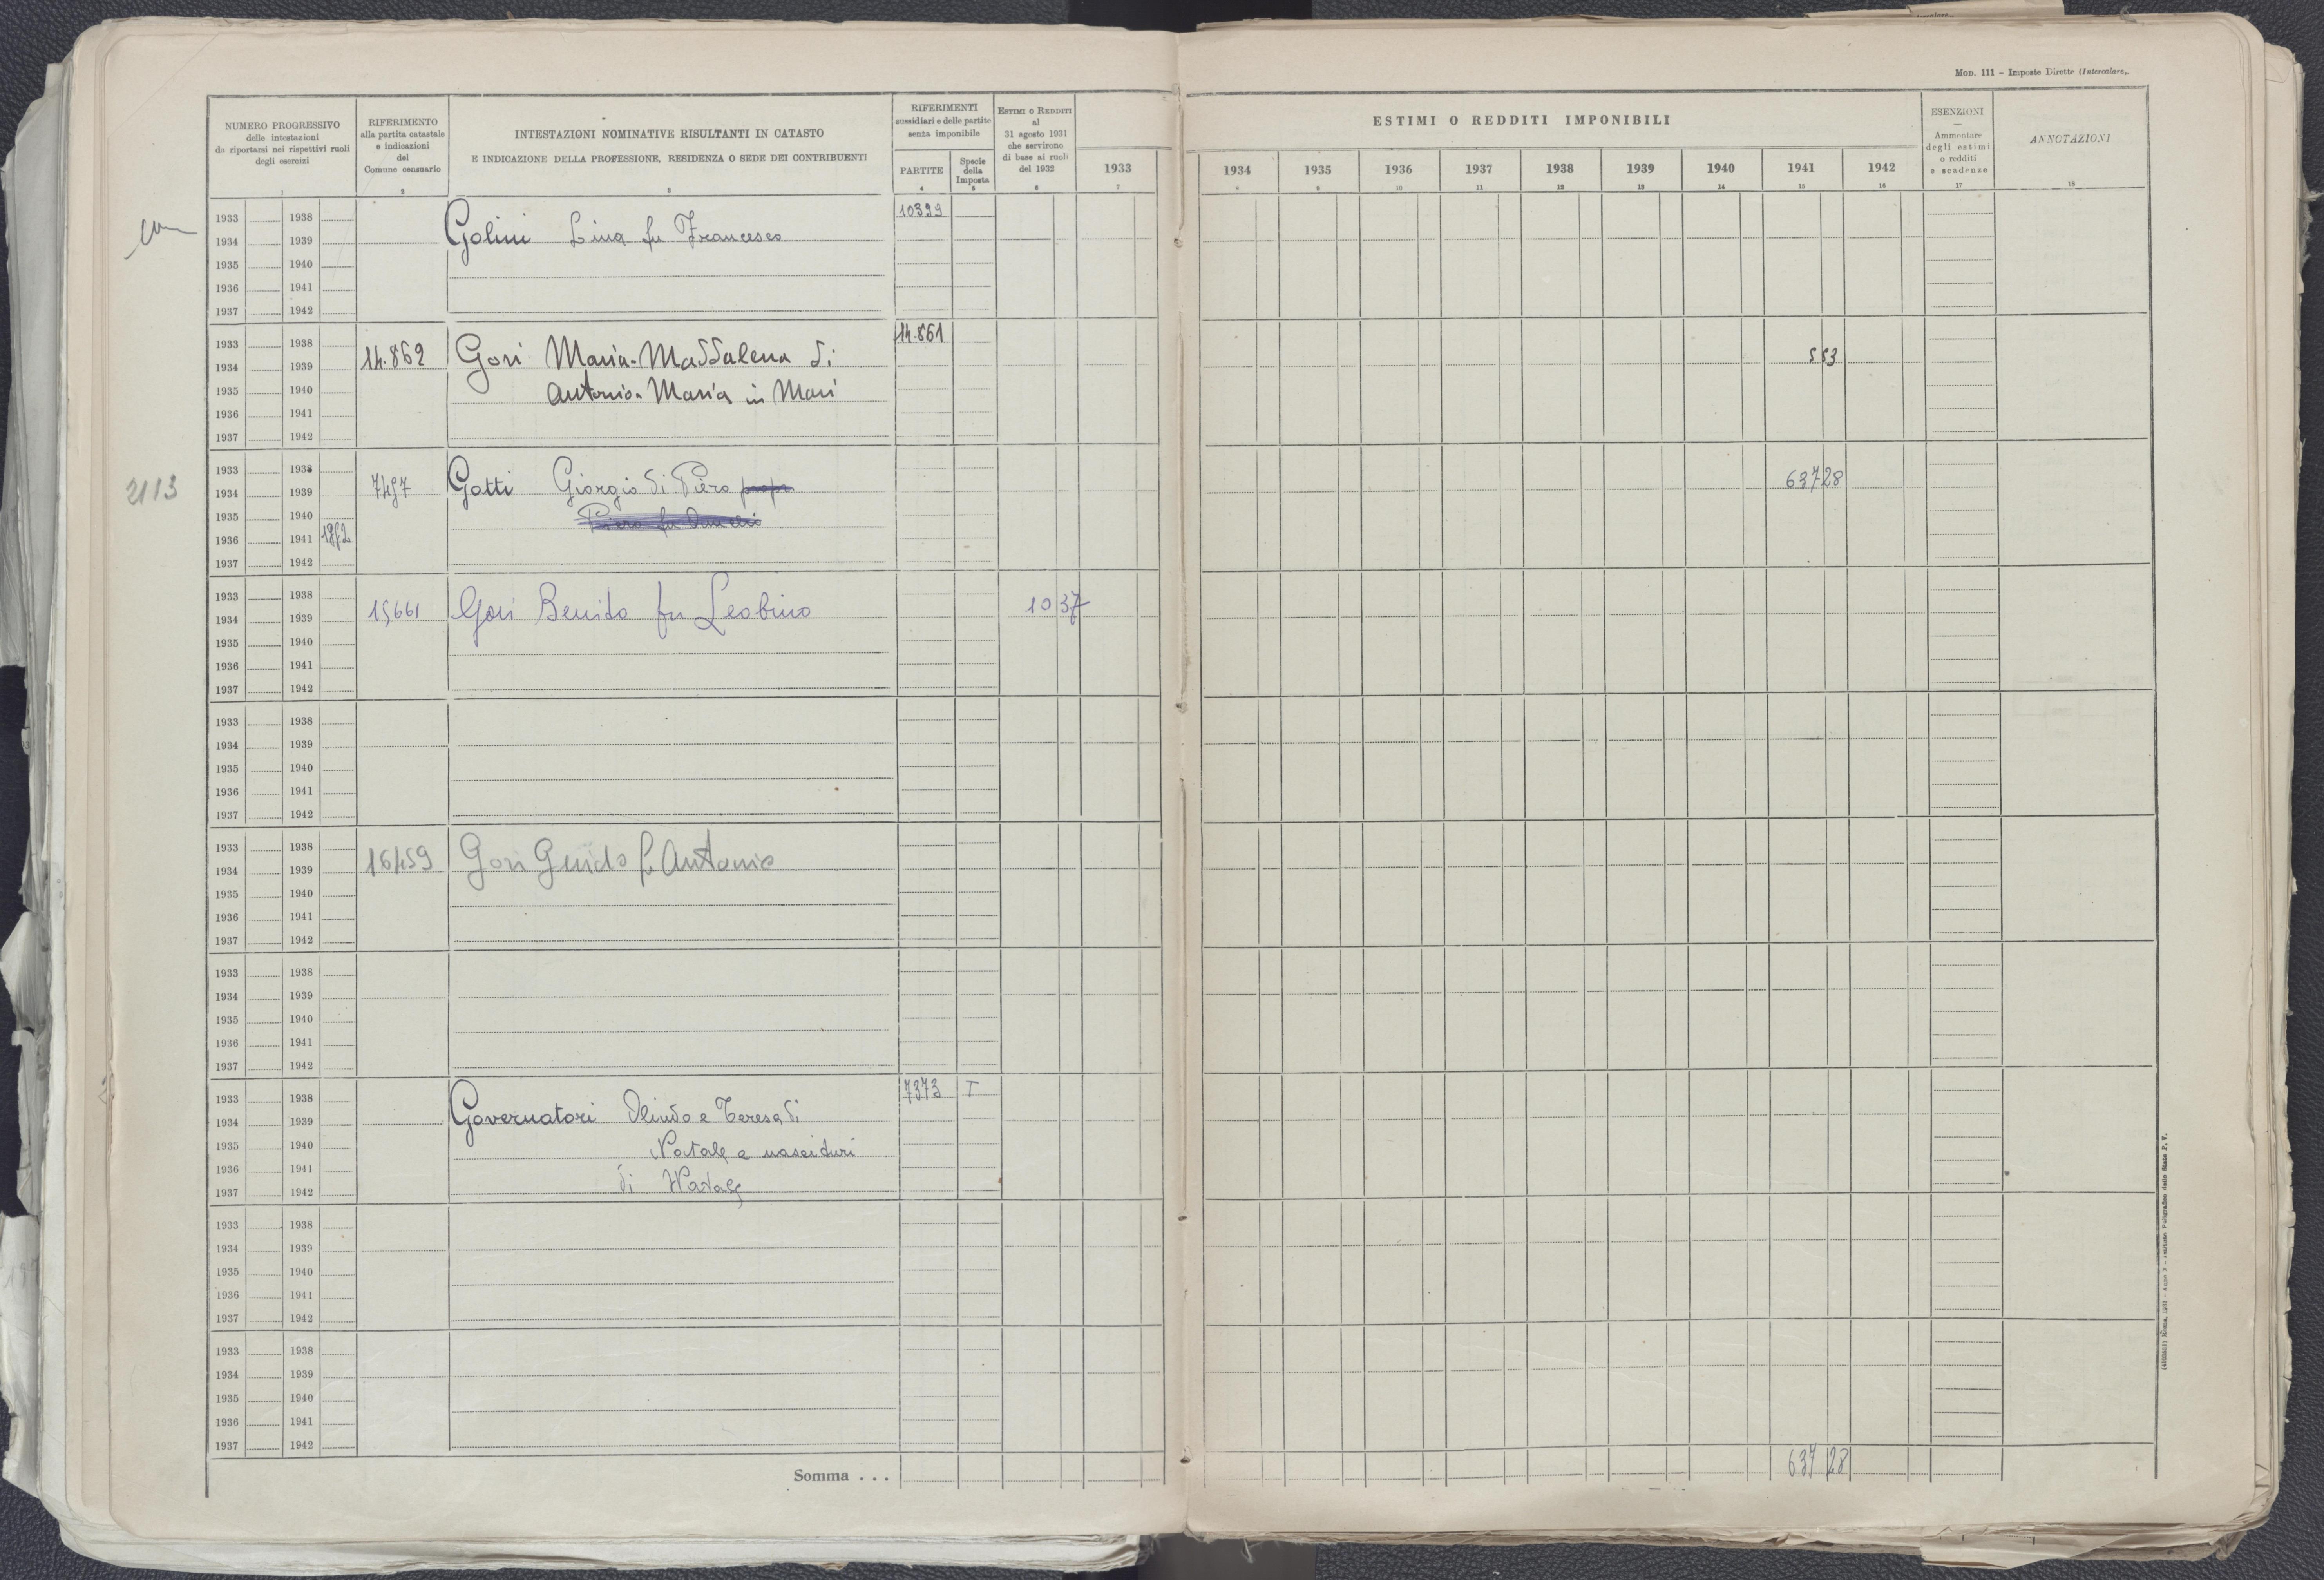 Mod. 111 – Imposte Dirette (Intercalare).
NUMERO PROGRESSIVO
delle intestazioni
da riportarsi nei rispettivi ruoli
degli esercizi
1
RIFERIMENTO
alla partita catastale
e indicazioni
del
Comune censuario
2
INTESTAZIONI NOMINATIVE RISULTANTI IN CATASTO
E INDICAZIONE DELLA PROFESSIONE, RESIDENZA O SEDE DEI CONTRIBUENTI
3
RIFERIMENTI
sussidiari e delle partite
senza imponibile
PARTITE
4
Specie
della
Imposta
5
ESTIMI O REDDITI
al
31 agosto 1931
che servirono
di base ai ruoli
del 1932
6
1933
7
ESTIMI O REDDITI IMPONIBILI
1934 1935 1936 1937 1938 1939 1940 1941 1942
8 9 10 11 12 13 14 15 16
ESENZIONI
—
Ammontare
degli estimi
o redditi
e scadenze
17
ANNOTAZIONI
18
1933 1938 10399
1934 1939 Golini Lina fu Francesco
1935 1940
1936 1941
1937 1942
14.861
1933 1938
14.862 Gori Maria-Maddalena di 5 53
1934 1939
1935 1940 Antonio-Maria in Mari
1936 1941
1937 1942
1933 1938
2113 1934 1939 7457 Gotti Giorgio di Piero 637 28
1935 1940 Piero fu
1936 1941
1937 1942
1933 1938
1934 1939 15661 Gori Benito fu Leobino 10 37
1935 1940
1936 1941
1937 1942
1933 1938
1934 1939
1935 1940
1936 1941
1937 1942
1933 1938
1934 1939 16459 Gori Guido f Antonio
1935 1940
1936 1941
1937 1942
1933 1938
1934 1939
1935 1940
1936 1941
1937 1942
1933 1938 7373 T
1934 1939 Governatori Olindo e Teresa di
1935 1940 Natale e nascituri
1936 1941
1937 1942 di Natale
1933 1938
1934 1939
1935 1940
1936 1941
1937 1942
1933 1938
1934 1939
1935 1940
1936 1941
1937 1942
Somma . . . 637 28